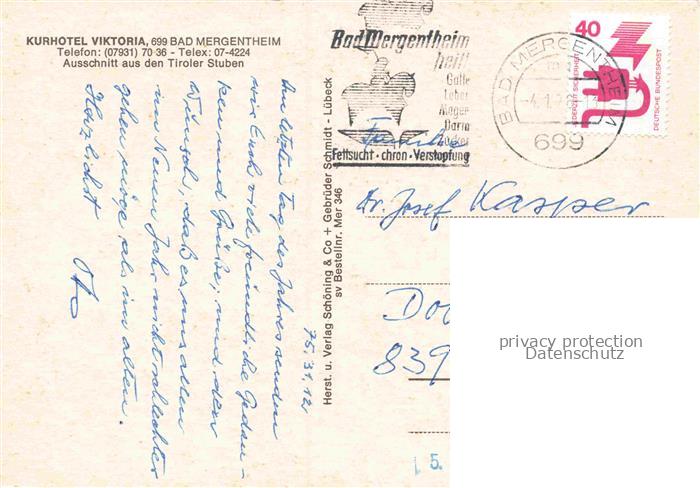 KURHOTEL VIKTORIA, 699 BAD MERGENTHEIM
Telefon: (07931) 70 36 - Telex: 07-4224
Ausschnitt aus den Tiroler Stuben
75.31.12
Am letzten Tag des Jahres senden
wir Euch viele freundliche Gedan-
ken und Grüße, und den
Wunsch, daß es uns allen
im Neuen Jahr nicht schlechter
gehen möge als im alten.
Herzlichst
Otto
Herst. u. Verlag Schöning & Co + Gebrüder Schmidt - Lübeck
sv Bestellnr. Mer 346
Bad Mergentheim
heilt
Galle
Leber
Magen
Darm
Zucker
Fettsucht · chron · Verstopfung
BAD MERGENTHEIM
-4.1.7
699
40
JEDERZEIT SICHERHEIT
DEUTSCHE BUNDESPOST
Familie
Dr. Josef Kasper
839
privacy protection
Datenschutz
5.